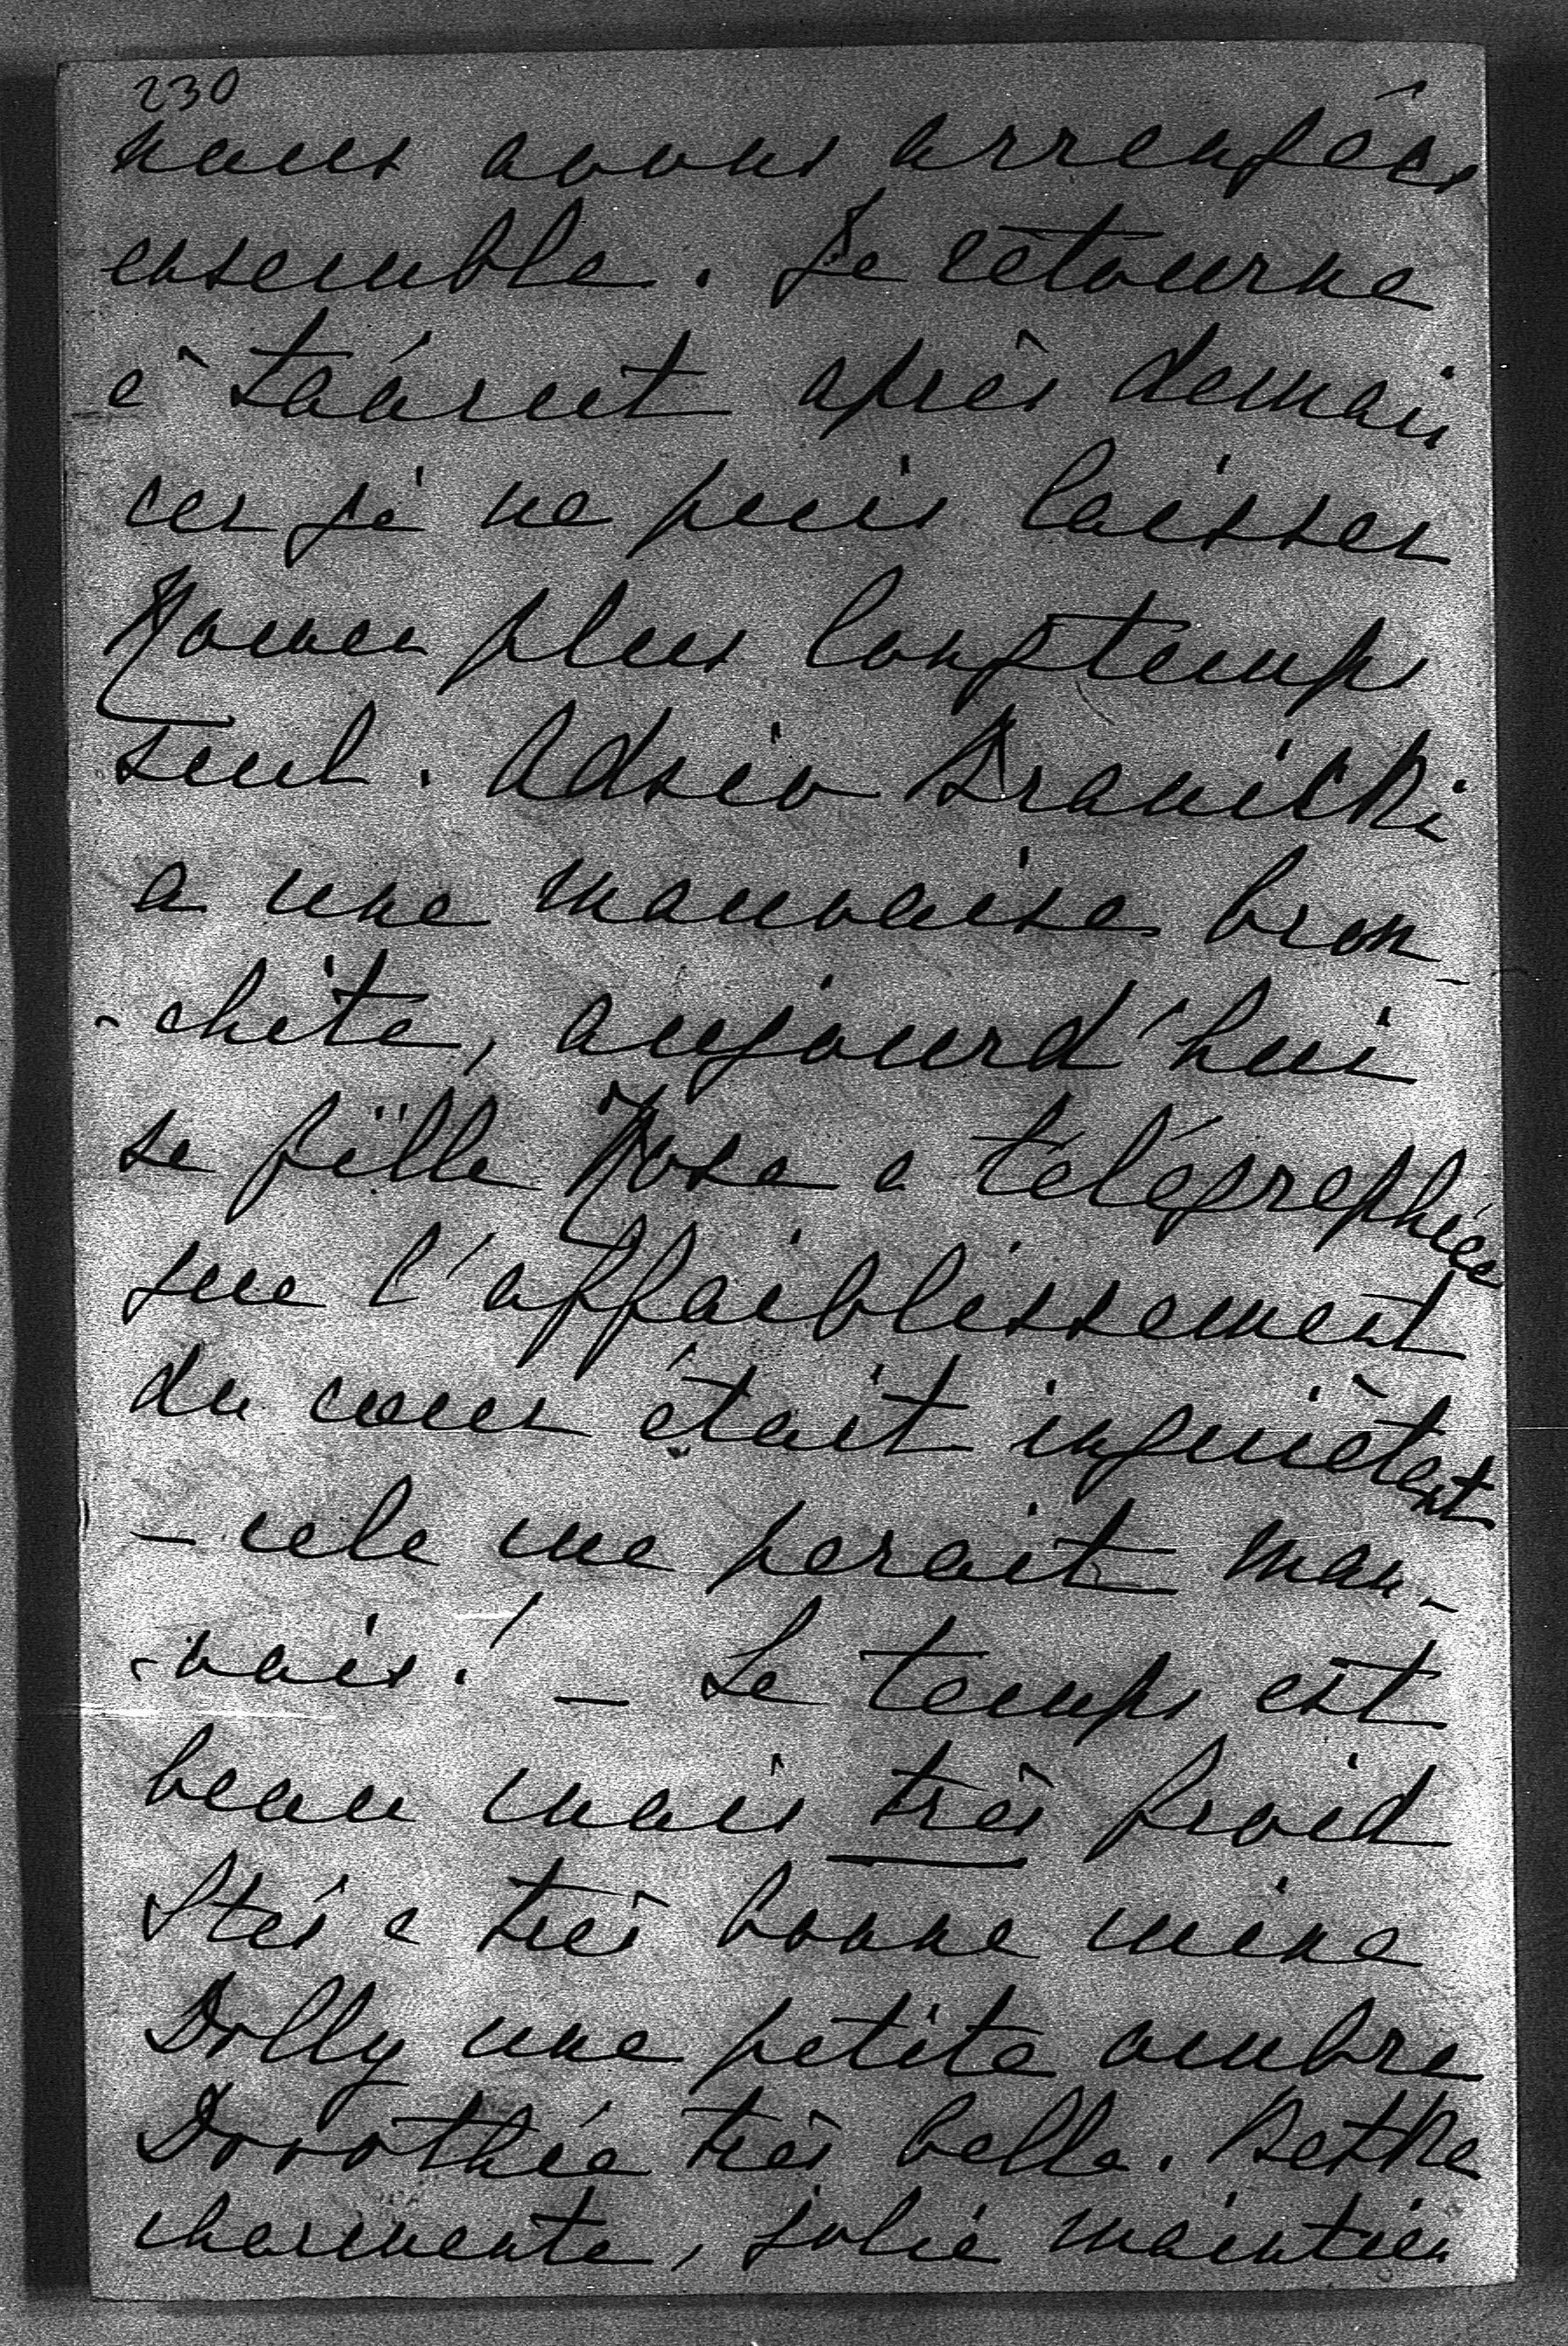 230
nous avons arrangées
ensemble. Je retourne
à Łańcut après demain
car je ne puis laisser
Roman plus longtemps
seul. Adzio Branicki
a une mauvaise bron-
-chite, aujourd'hui
sa fille Rosa a télégraphiée
que l'affaiblissement
du cœur était inquiètant
- cela me parait mau-
-vais! - Le temps est
beau mais très froid
Staś a très bonne mine
Dolly une petite ombre
Dorothée très belle. Betka
charmante, jolie maintien